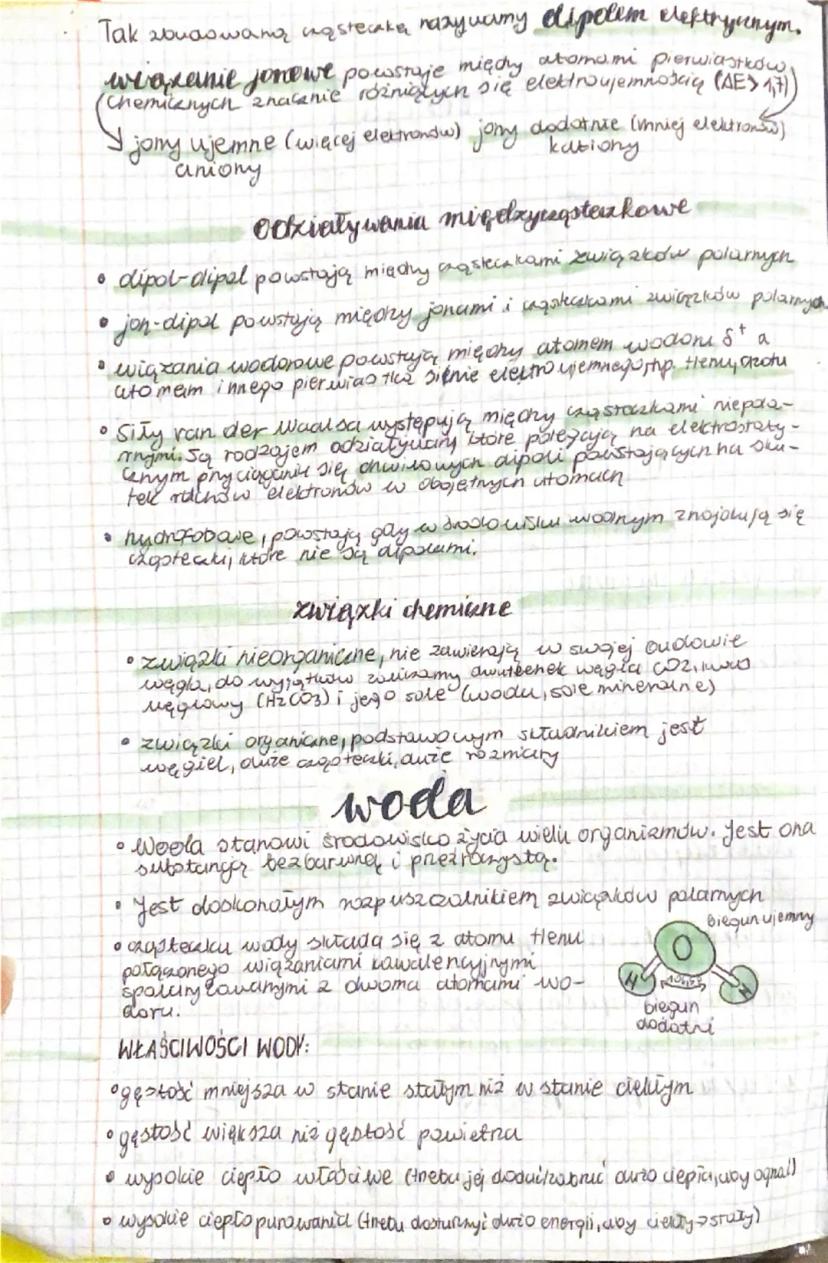 Tak zbudowaną cząsteczkę nazywamy dipolem elektrycznym.
wiązanie jonowe powstaje między atomami pierwiastków
chemicznych znacznie różniących się elektroujemnością (ΔE>1,7)
jony ujemne (więcej elektronów) jony dodatnie (mniej elektronów)
aniony kationy
odziaływania międzycząsteczkowe
• dipol-dipol powstają między cząsteczkami związków polarnych
• jon-dipol powstają między jonami i cząsteczkami związków polarnych
• wiązania wodorowe powstają między atomem wodoru δ+ a
atomem innego pierwiastka silnie elektroujemnego, np. tlenu, azotu
• Siły van der Waalsa występują między cząsteczkami niepola-
rnymi. Są rodzajem odziaływań, które polegają na elektrostaty-
cznym przyciąganiu się chwilowych dipoli powstających na sku-
tek ruchów elektronów w obojętnych atomach
• hydrofobowe, powstają gdy w środowisku wodnym znajdują się
cząsteczki, które nie są dipolami.
związki chemiczne
• związki nieorganiczne, nie zawierają w swojej budowie
węgla, do wyjątków zaliczamy dwutlenek węgla CO2, kwas
węglowy (H2CO3) i jego sole (woda, sole mineralne)
• związki organiczne, podstawowym składnikiem jest
węgiel, duże cząsteczki, duże rozmiary
woda
• Woda stanowi środowisko życia wielu organizmów. Jest ona
substancją bezbarwną i przeźroczystą.
• Jest doskonałym rozpuszczalnikiem związków polarnych
biegun ujemny
• cząsteczka wody składa się z atomu tlenu
połączonego wiązaniami kowalencyjnymi
spolaryzowanymi z dwoma atomami wo-
doru.
O
H H
biegun
dodatni
WŁAŚCIWOŚCI WODY:
• gęstość mniejsza w stanie stałym niż w stanie ciekłym
• gęstość większa niż gęstość powietrza
• wysokie ciepło właściwe (trzeba jej dodać/zabrać dużo ciepła, aby ogrzać)
• wysokie ciepło parowania (trzeba dostarczyć dużo energii, aby ciekły→stały)